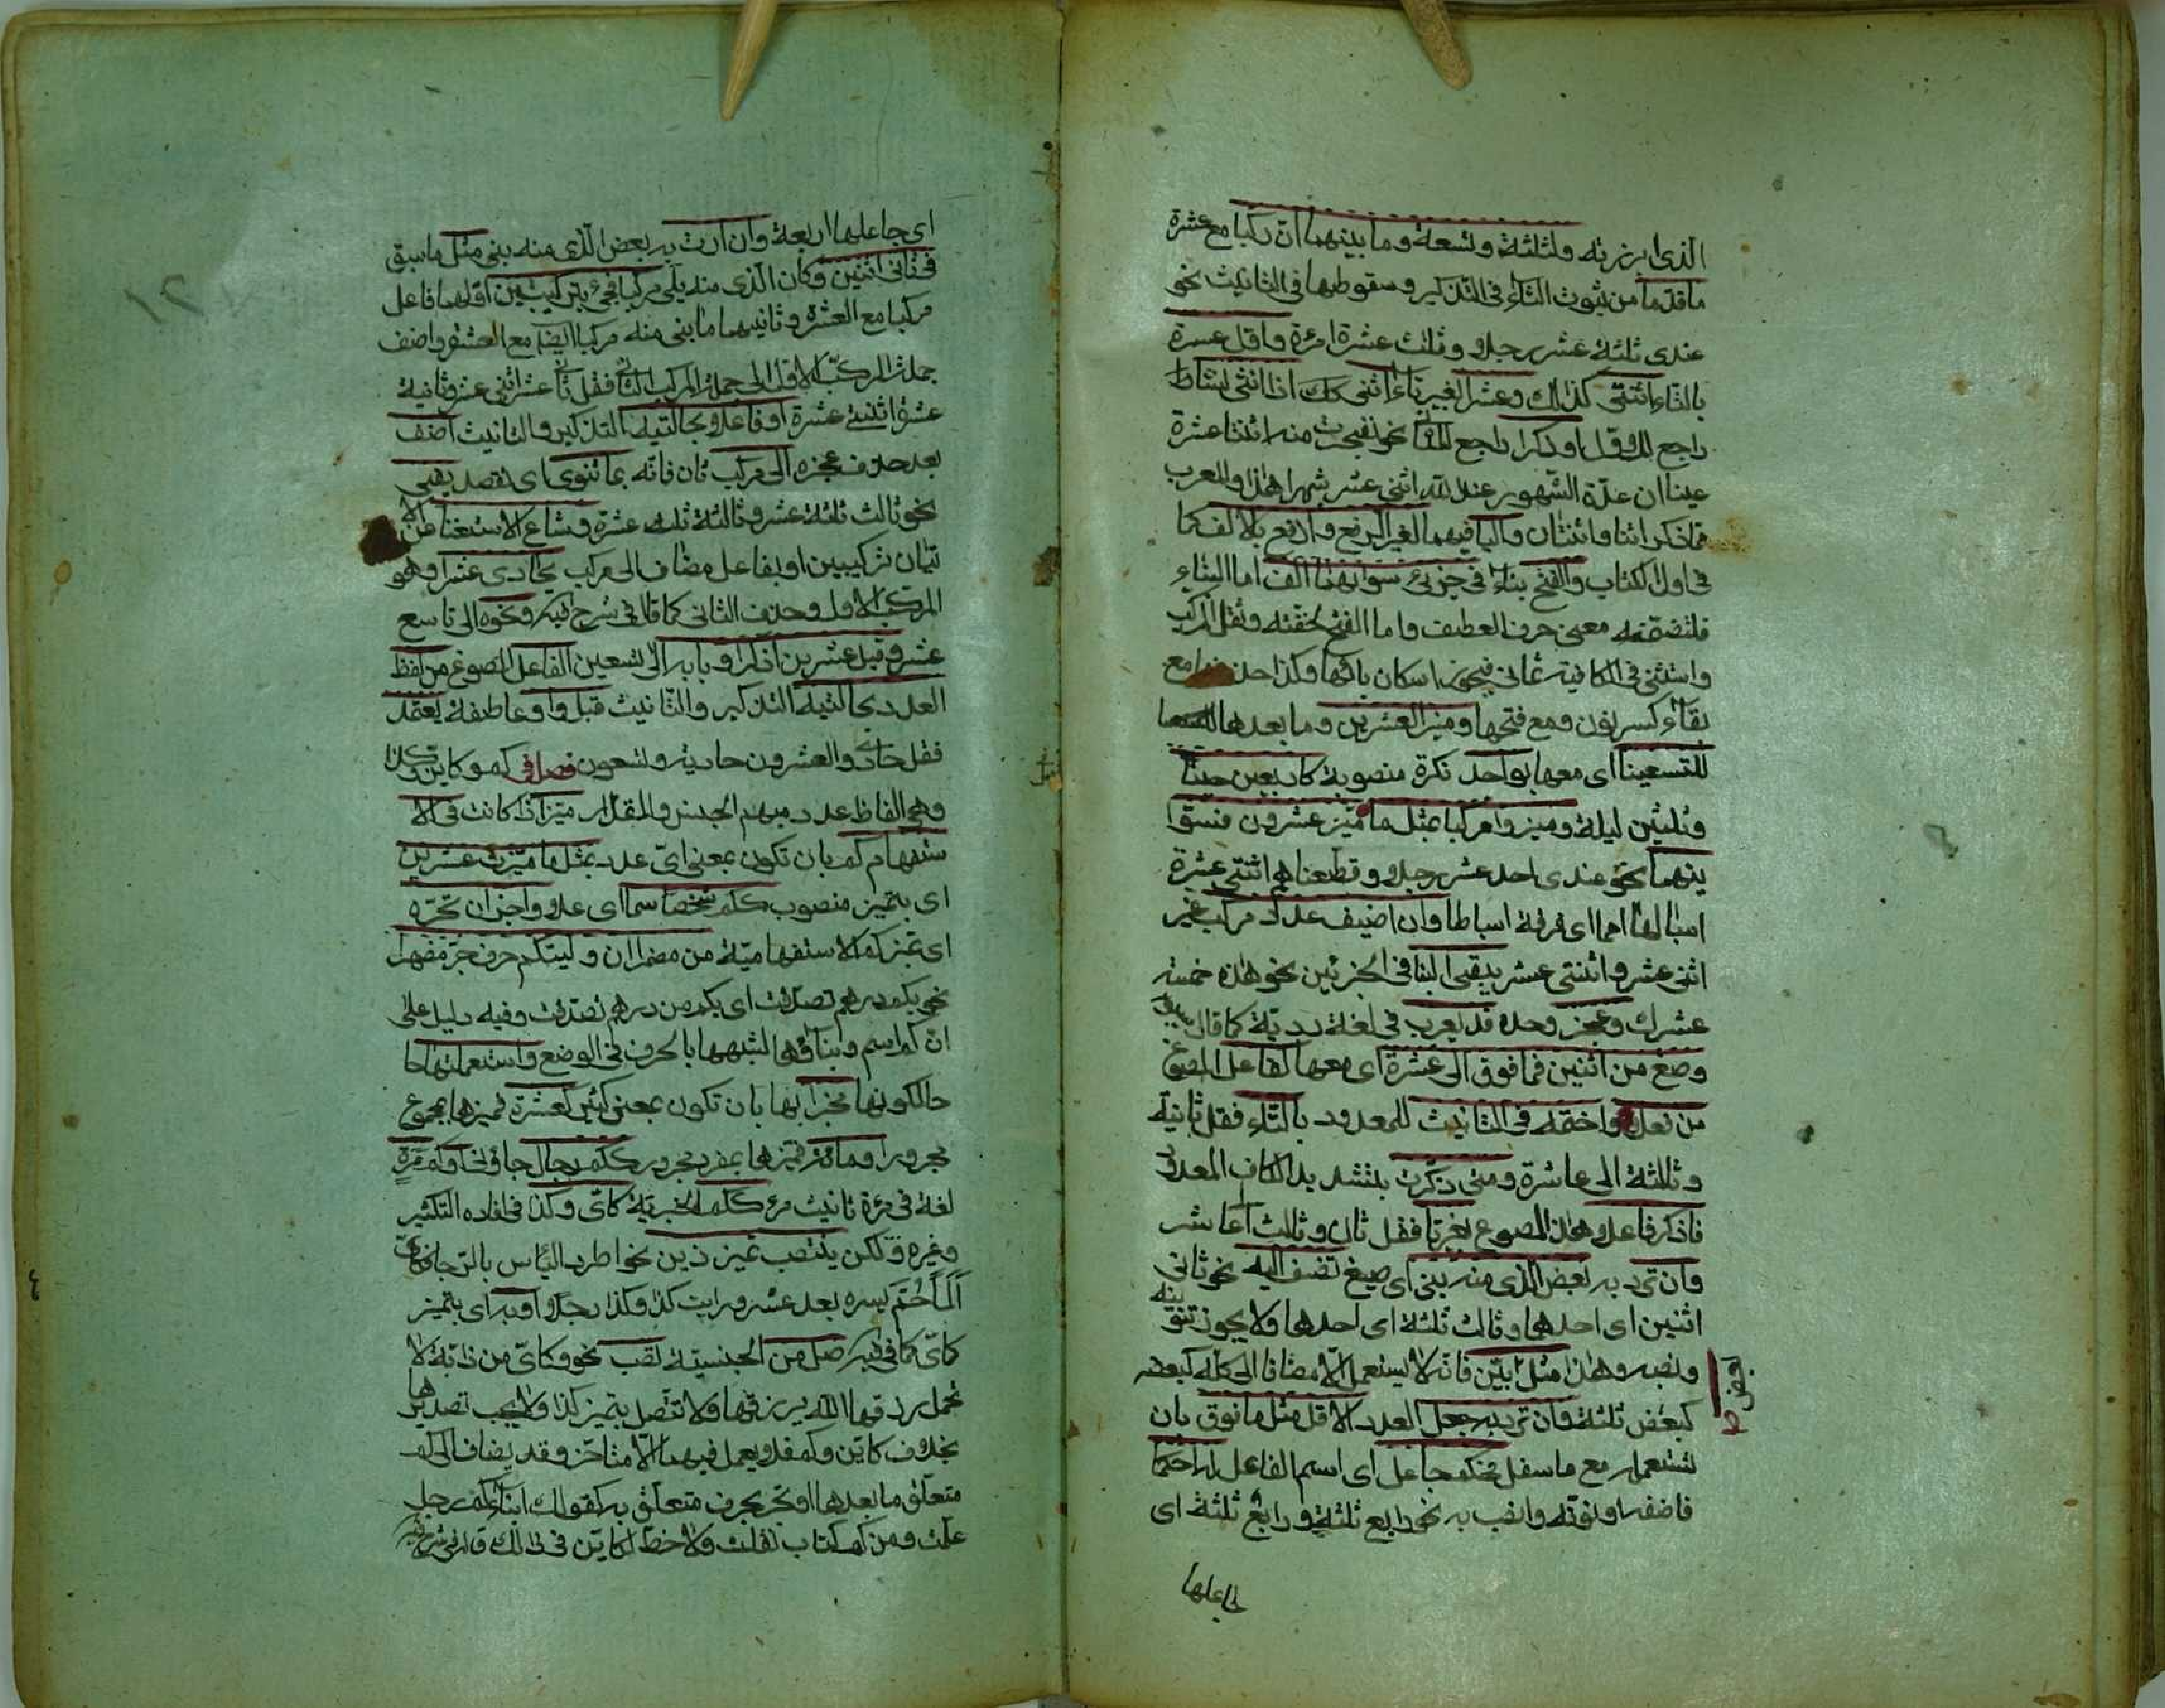 الذى ابرزته ولثلثة وتسعة وما بينهما ان ركبا مع عشرة
ما قدما من ثبوت التاء فى التذكير وسقوطها فى التانيث نحو
عندى ثلثة عشر رجلا وثلث عشرة امرة واول عشرة
بالتاء اثنتى كذلك وعشرا لغير تاء اثنى كك اذا انثى تشاط
راجع للاول او ذكرا راجع للثانى نحو فنفجرت منه اثنتا عشرة
عينا ان عدة الشهور عند الله اثنى عشر شهرا هذا والمعرب
مما ذكر اثنا واثنتان واليا فيهما لغير الرفع وارفع بالالف كما
فى اول الكتاب والفتح بناء فى جزئ سواهما الف اما البناء
فلتضمنه معنى حرف العطف واما الفتح لخفته وثقل المركب
واستثنى فى الكافية ثمانى فيجوز اسكان يائها وكذا حذفها مع
بقاء كسر نون ومع فتحها وميز العشرين وما بعدها
للتسعينا اى معها بواحد نكرة منصوبة كاربعين حينا
وثلثين ليلة وميزوا مركبا بمثل ما ميز عشرون فسوّ
ينهما نحو عندى احد عشر رجلا وقطعناهم اثنتى عشرة
اسباطا امما اى فرقة اسباطا وان اضيف عدد مركب غير
اثنى عشر واثنتى عشر يبقى البنا فى الجزئين نحو هذه خمسة
عشرك وعجز وحده قد يعرب فى لغة ردية كما قال
وصغ من اثنين فما فوق الى عشرة اى معها كفاعل المصوغ
من فعلا واختمه فى التانيث للمعدود بالتاء فقل ثانية
وثالثة الى عاشرة ومتى ذكرت بتشديد الكاف المعدود
فاذكر فاعلا هذا المصوغ بغير تا فقل ثان وثالث الى عاشر
وان ترد به بعض الذى منه بنى اى صيغ تضف اليه نحو ثانى
اثنين اى احدهما وثالث ثلثة اى احدها ولا يجوز تنوينه
ونصبه وهذا مثل بين فانه لا يستعمل الا مضافا الى كله كبعض
كبعض ثلثة وان ترد به جعل العدد الاقل مثل ما فوق بان
تستعمله مع ما سفل فحكم جاعل اى اسم الفاعل له احكما
فاضفه او نونه وانصب به نحو رابع ثلثة ورابع ثلثة اى
جاعلها
اى جاعلها اربعة وان اردت به بعض الذى منه بنى مثل ما سبق
فى ثانى اثنين وكان الذى منه بنى مركبا فجئ بتركيبين اولهما فاعل
مركبا مع العشرة وثانيهما ما بنى منه مركبا ايضا مع العشرة واضف
جملة المركب الاول الى جملة المركب الثانى فقل ثانى عشر اثنى عشر وثانية
عشرة اثنتى عشرة او فاعلا بحالتيه التذكير والتانيث اضف
بعد حذف عجزه الى مركب ثان فانه بما تنوى اى تقصد يفى
نحو ثالث ثلثة عشر وثالثة ثلث عشرة وشاع الاستغنا عن الا
تيان بتركيبين او بفاعل مضاف الى مركب بحادى عشرا وهو
المركب الاول وحذف الثانى كما قال فى شرح فيه ونحوه الى تاسع
عشر وقبل عشرين اذكرا وبابه الى تسعين الفاعل المصوغ من لفظ
العدد بحالتيه التذكير والتانيث قبل واو عاطفة يعتمد
فقل حادى والعشرون حادية وتسعون فصل فى كم وكاين وكذا
وهى الفاظ عدد مبهم الجنس والمقدار ميز اذا كانت فى الا
ستفهام كم بان تكون بمعنى اى عدد بمثل ما ميزت عشرين
اى بتميز منصوب ككم شخصا سما اى علا واجز ان تجره
اى تميز كم الاستفهامية من مضمرا ان وليت كم حرف جر مظهرا
نحو بكم درهم تصدقت اى بكم من درهم تصدقت وفيه دليل على
ان كم اسم وبناؤها لشبهها بالحرف فى الوضع واستعملنها كا
حالكونها مخبرا بها بان تكون بمعنى كثير كعشرة فميزها بمجموع
مجرور او مائة فميزها بمفرد مجرور ككم رجال جاؤنى او كم مرة
لغة فى مرة تانيث مرء ككم الخبرية كاى وكذا فى افادة التكثير
وغيره ولكن ينتصب تميز ذين نحو اطرد الياس بالرجا فكاى
الما حم يسره بعد عشر ورايت كذا وكذا رجلا او به اى بتميز
كاى كما فى فيه صل من الجنسية تصب نحو وكاى من دابة لا
تحمل رزقها الله يرزقها ولا تتصل بتميز كذا ولا يجب تصديرها
بخلاف كاين وكم فلا يعمل فيهما الا متاخر وقد يضاف الى كم
متعلق ما بعدها او تجر بحرف متعلق به كقولك ابناء كم رجل
علمت ومن كم كتاب نقلت ولا حظ لكاين فى ذلك قاله فى شرح